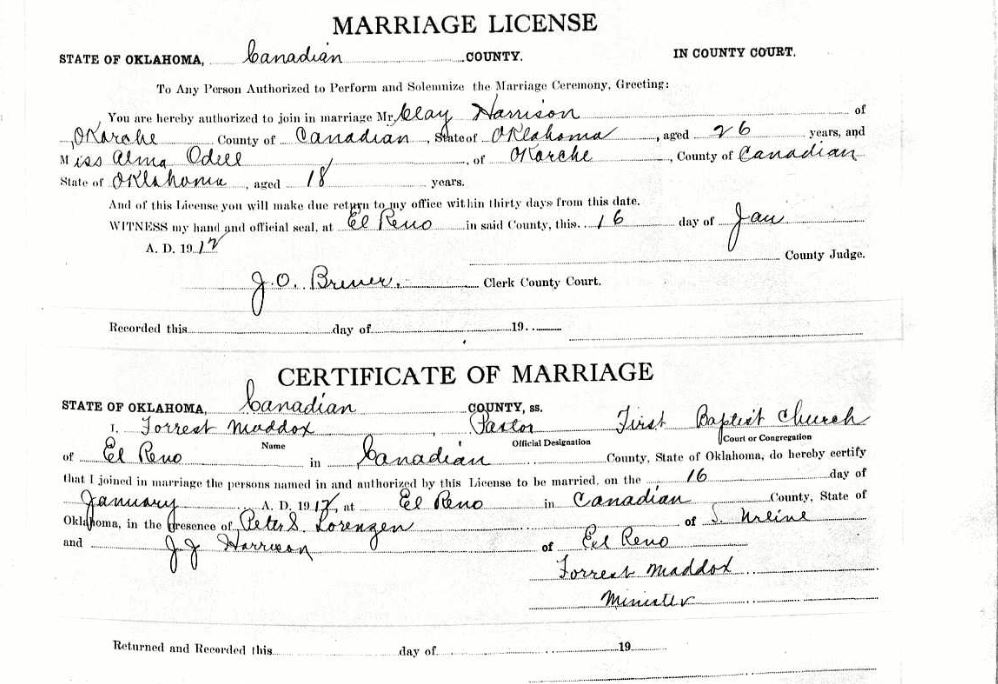 MARRIAGE LICENSE
STATE OF OKLAHOMA, Canadian COUNTY. IN COUNTY COURT.
To Any Person Authorized to Perform and Solemnize the Marriage Ceremony, Greeting:
You are hereby authorized to join in marriage Mr. Clay Harrison of
Okarche County of Canadian, State of Oklahoma, aged 26 years, and
Miss Alma Odell, of Okarche, County of Canadian
State of Oklahoma, aged 18 years.
And of this License you will make due return to my office within thirty days from this date.
WITNESS my hand and official seal, at El Reno in said County, this. 16 day of Jan
A. D. 1912
County Judge.
J.O. Brewer. Clerk County Court.
Recorded this day of 19
CERTIFICATE OF MARRIAGE
STATE OF OKLAHOMA, Canadian COUNTY, ss.
I, Forrest Maddox, Pastor First Baptist Church
Name Official Designation Court or Congregation
of El Reno in Canadian County, State of Oklahoma, do hereby certify
that I joined in marriage the persons named in and authorized by this License to be married, on the 16 day of
January A. D. 1912, at El Reno in Canadian County, State of
Oklahoma, in the presence of Peter S. Lorenzen of
and J J Harrison of El Reno
Forrest Maddox
Minister
Returned and Recorded this day of 19